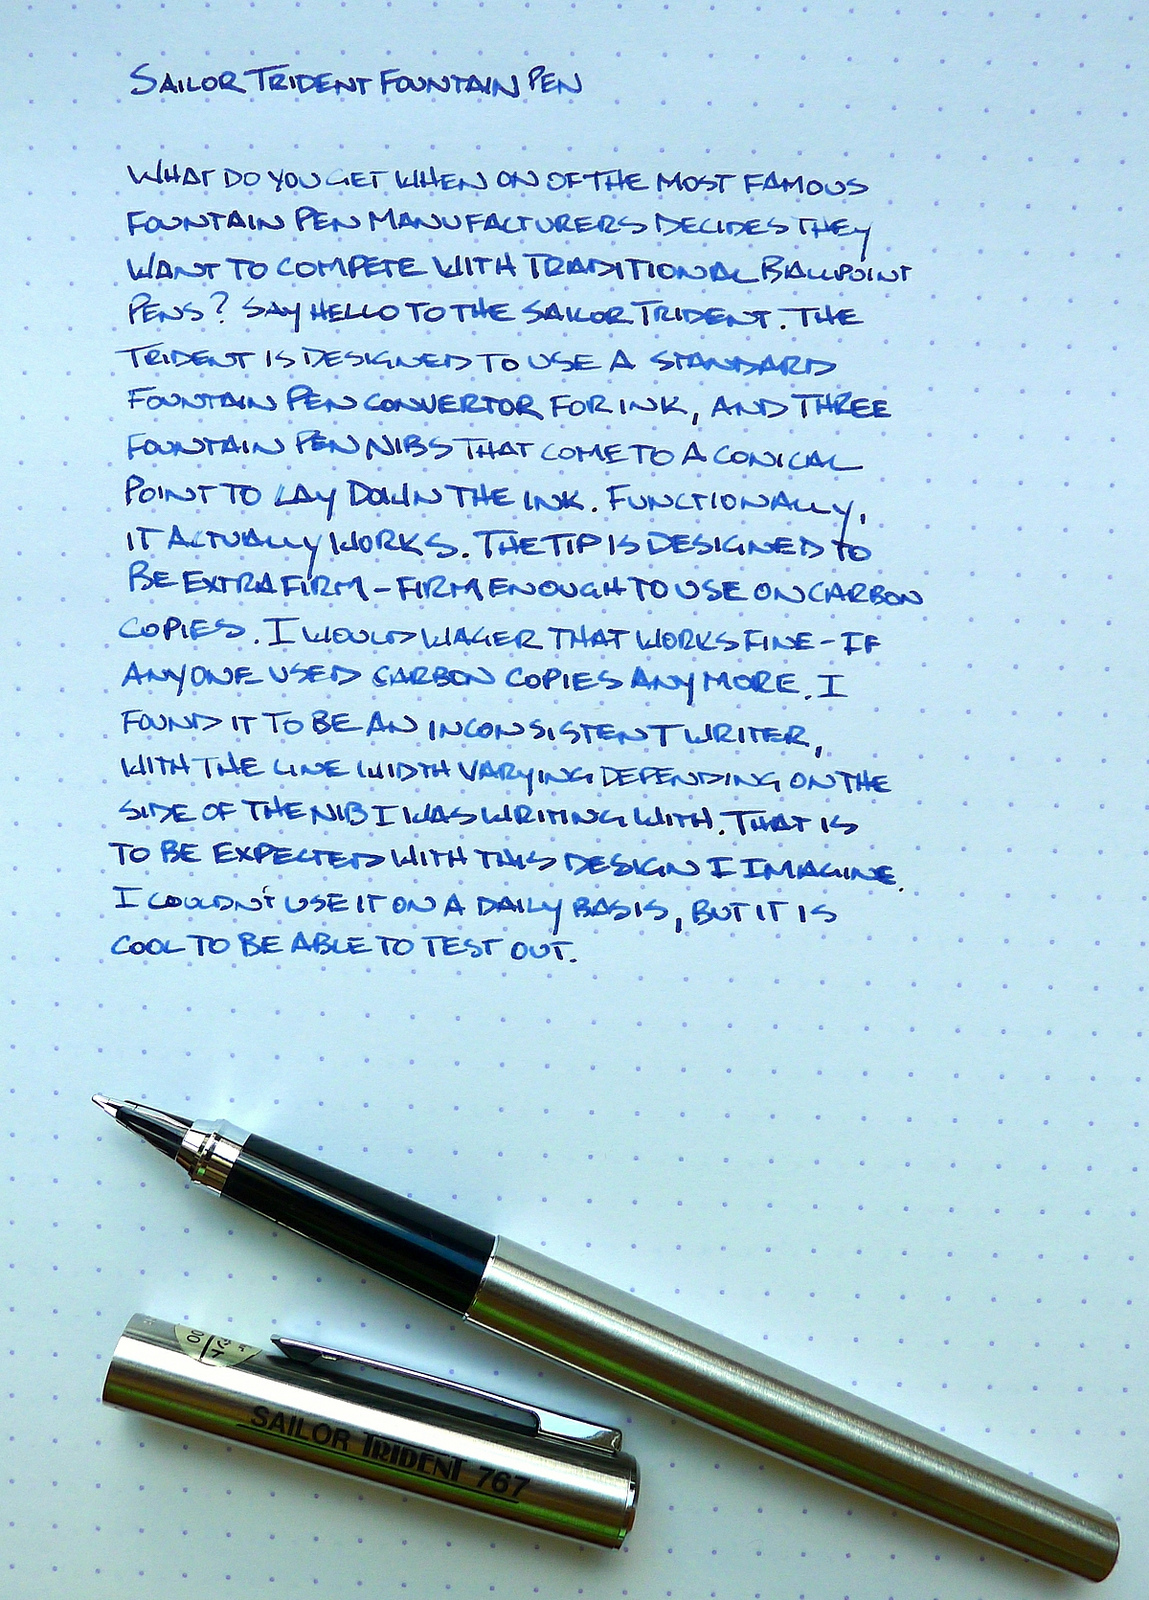 SAILOR TRIDENT FOUNTAIN PEN
WHAT DO YOU GET WHEN ON OF THE MOST FAMOUS
FOUNTAIN PEN MANUFACTURERS DECIDES THEY
WANT TO COMPETE WITH TRADITIONAL BALLPOINT
PENS? SAY HELLO TO THE SAILOR TRIDENT. THE
TRIDENT IS DESIGNED TO USE A STANDARD
FOUNTAIN PEN CONVERTOR FOR INK, AND THREE
FOUNTAIN PEN NIBS THAT COME TO A CONICAL
POINT TO LAY DOWN THE INK. FUNCTIONALLY,
IT ACTUALLY WORKS. THE TIP IS DESIGNED TO
BE EXTRA FIRM – FIRM ENOUGH TO USE ON CARBON
COPIES. I WOULD WAGER THAT WORKS FINE – IF
ANYONE USED CARBON COPIES ANY MORE. I
FOUND IT TO BE AN INCONSISTENT WRITER,
WITH THE LINE WIDTH VARYING DEPENDING ON THE
SIDE OF THE NIB I WAS WRITING WITH. THAT IS
TO BE EXPECTED WITH THIS DESIGN I IMAGINE.
I COULDN'T USE IT ON A DAILY BASIS, BUT IT IS
COOL TO BE ABLE TO TEST OUT.
SAILOR TRIDENT 767